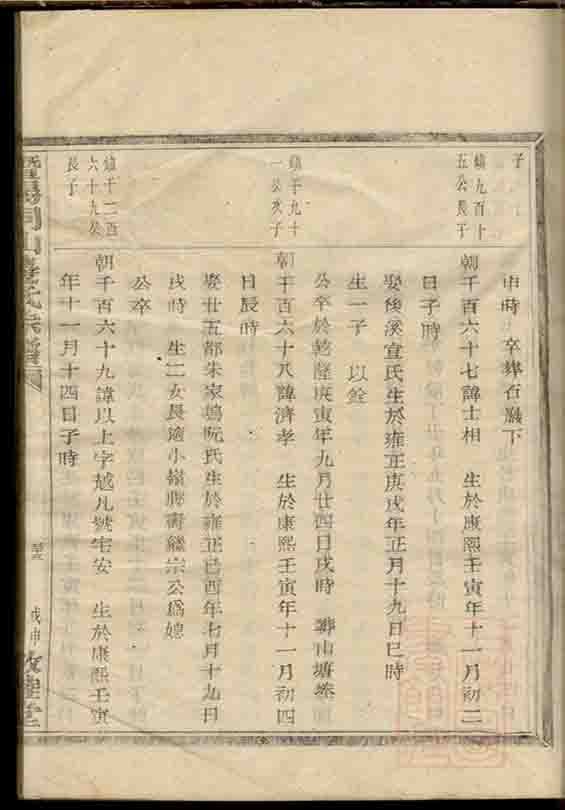 子
申時 卒葬石巖下
鎮九百十
五公長子
朝千百六十七諱士相 生於康熙壬寅年十一月初二
日子時
娶後溪宣氏生於雍正庚戌年正月十九日巳時
生一子 以銓
公卒於乾隆庚寅年九月廿四日戌時 葬山塘
鎮千九十
一公次子
朝千百六十八諱濟孝 生於康熙壬寅年十一月初四
日辰時
娶廿五都朱家塢阮氏生於雍正己酉年七月十九日
戌時 生二女長適小嶺 壽繼宗公爲媳
公卒
鎮千二百
六十九公
長子
朝千百六十九諱以上字越凡號宅安 生於康熙壬寅
年十一月十四日子時
暨陽同山壽氏宗譜
戊申 敦睦堂